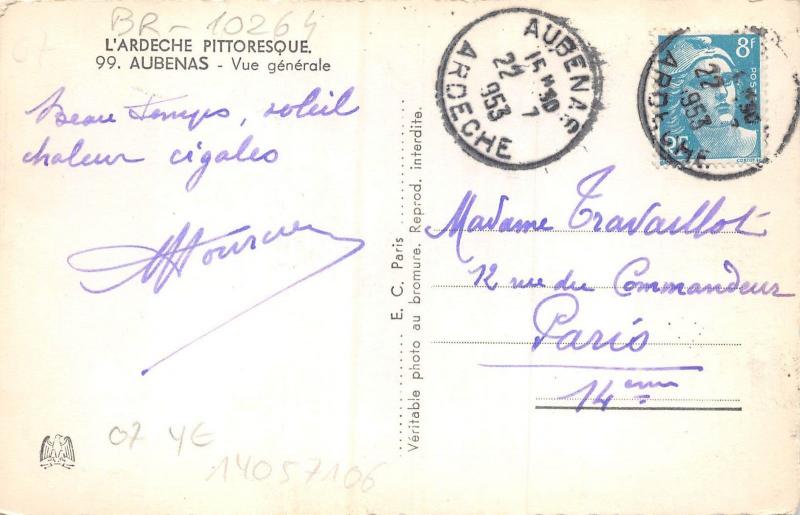 BR-10264
L'ARDECHE PITTORESQUE.
99. AUBENAS - Vue générale
Beau temps, soleil
chaleur cigales
07 YE
14057106
E. C. Paris
Véritable photo au bromure. Reprod. interdite.
AUBENAS
15 H 30
22 7
953
ARDECHE
8F
22 7
953
ARDECHE
Madame Travaillot
12 rue du Commandeur
Paris
14ème